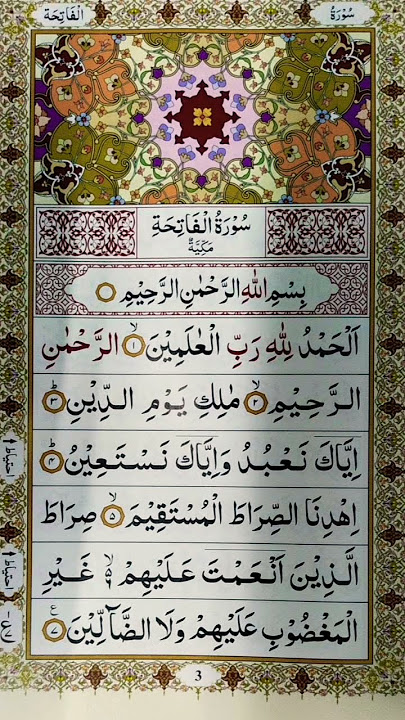 سُوْرَةُ
الْفَاتِحَة
سُوْرَةُ الْفَاتِحَةِ
مَكِّيَّةٌ
بِسْمِ اللهِ الرَّحْمٰنِ الرَّحِيْمِ
اَلْحَمْدُ لِلّٰهِ رَبِّ الْعٰلَمِيْنَ ۙ﴿۱﴾ الرَّحْمٰنِ
الرَّحِيْمِ ۙ﴿۲﴾ مٰلِكِ يَوْمِ الدِّيْنِ ؕ﴿۳﴾
اِيَّاكَ نَعْبُدُ وَاِيَّاكَ نَسْتَعِيْنُ ؕ﴿۴﴾
اِهْدِنَا الصِّرَاطَ الْمُسْتَقِيْمَ ۙ﴿۵﴾ صِرَاطَ
الَّذِيْنَ اَنْعَمْتَ عَلَيْهِمْ ۙ۬ۦ غَيْرِ
الْمَغْضُوْبِ عَلَيْهِمْ وَلَا الضَّآلِّيْنَ ﴿۷﴾ ع
احتیاط
احتیاط
3